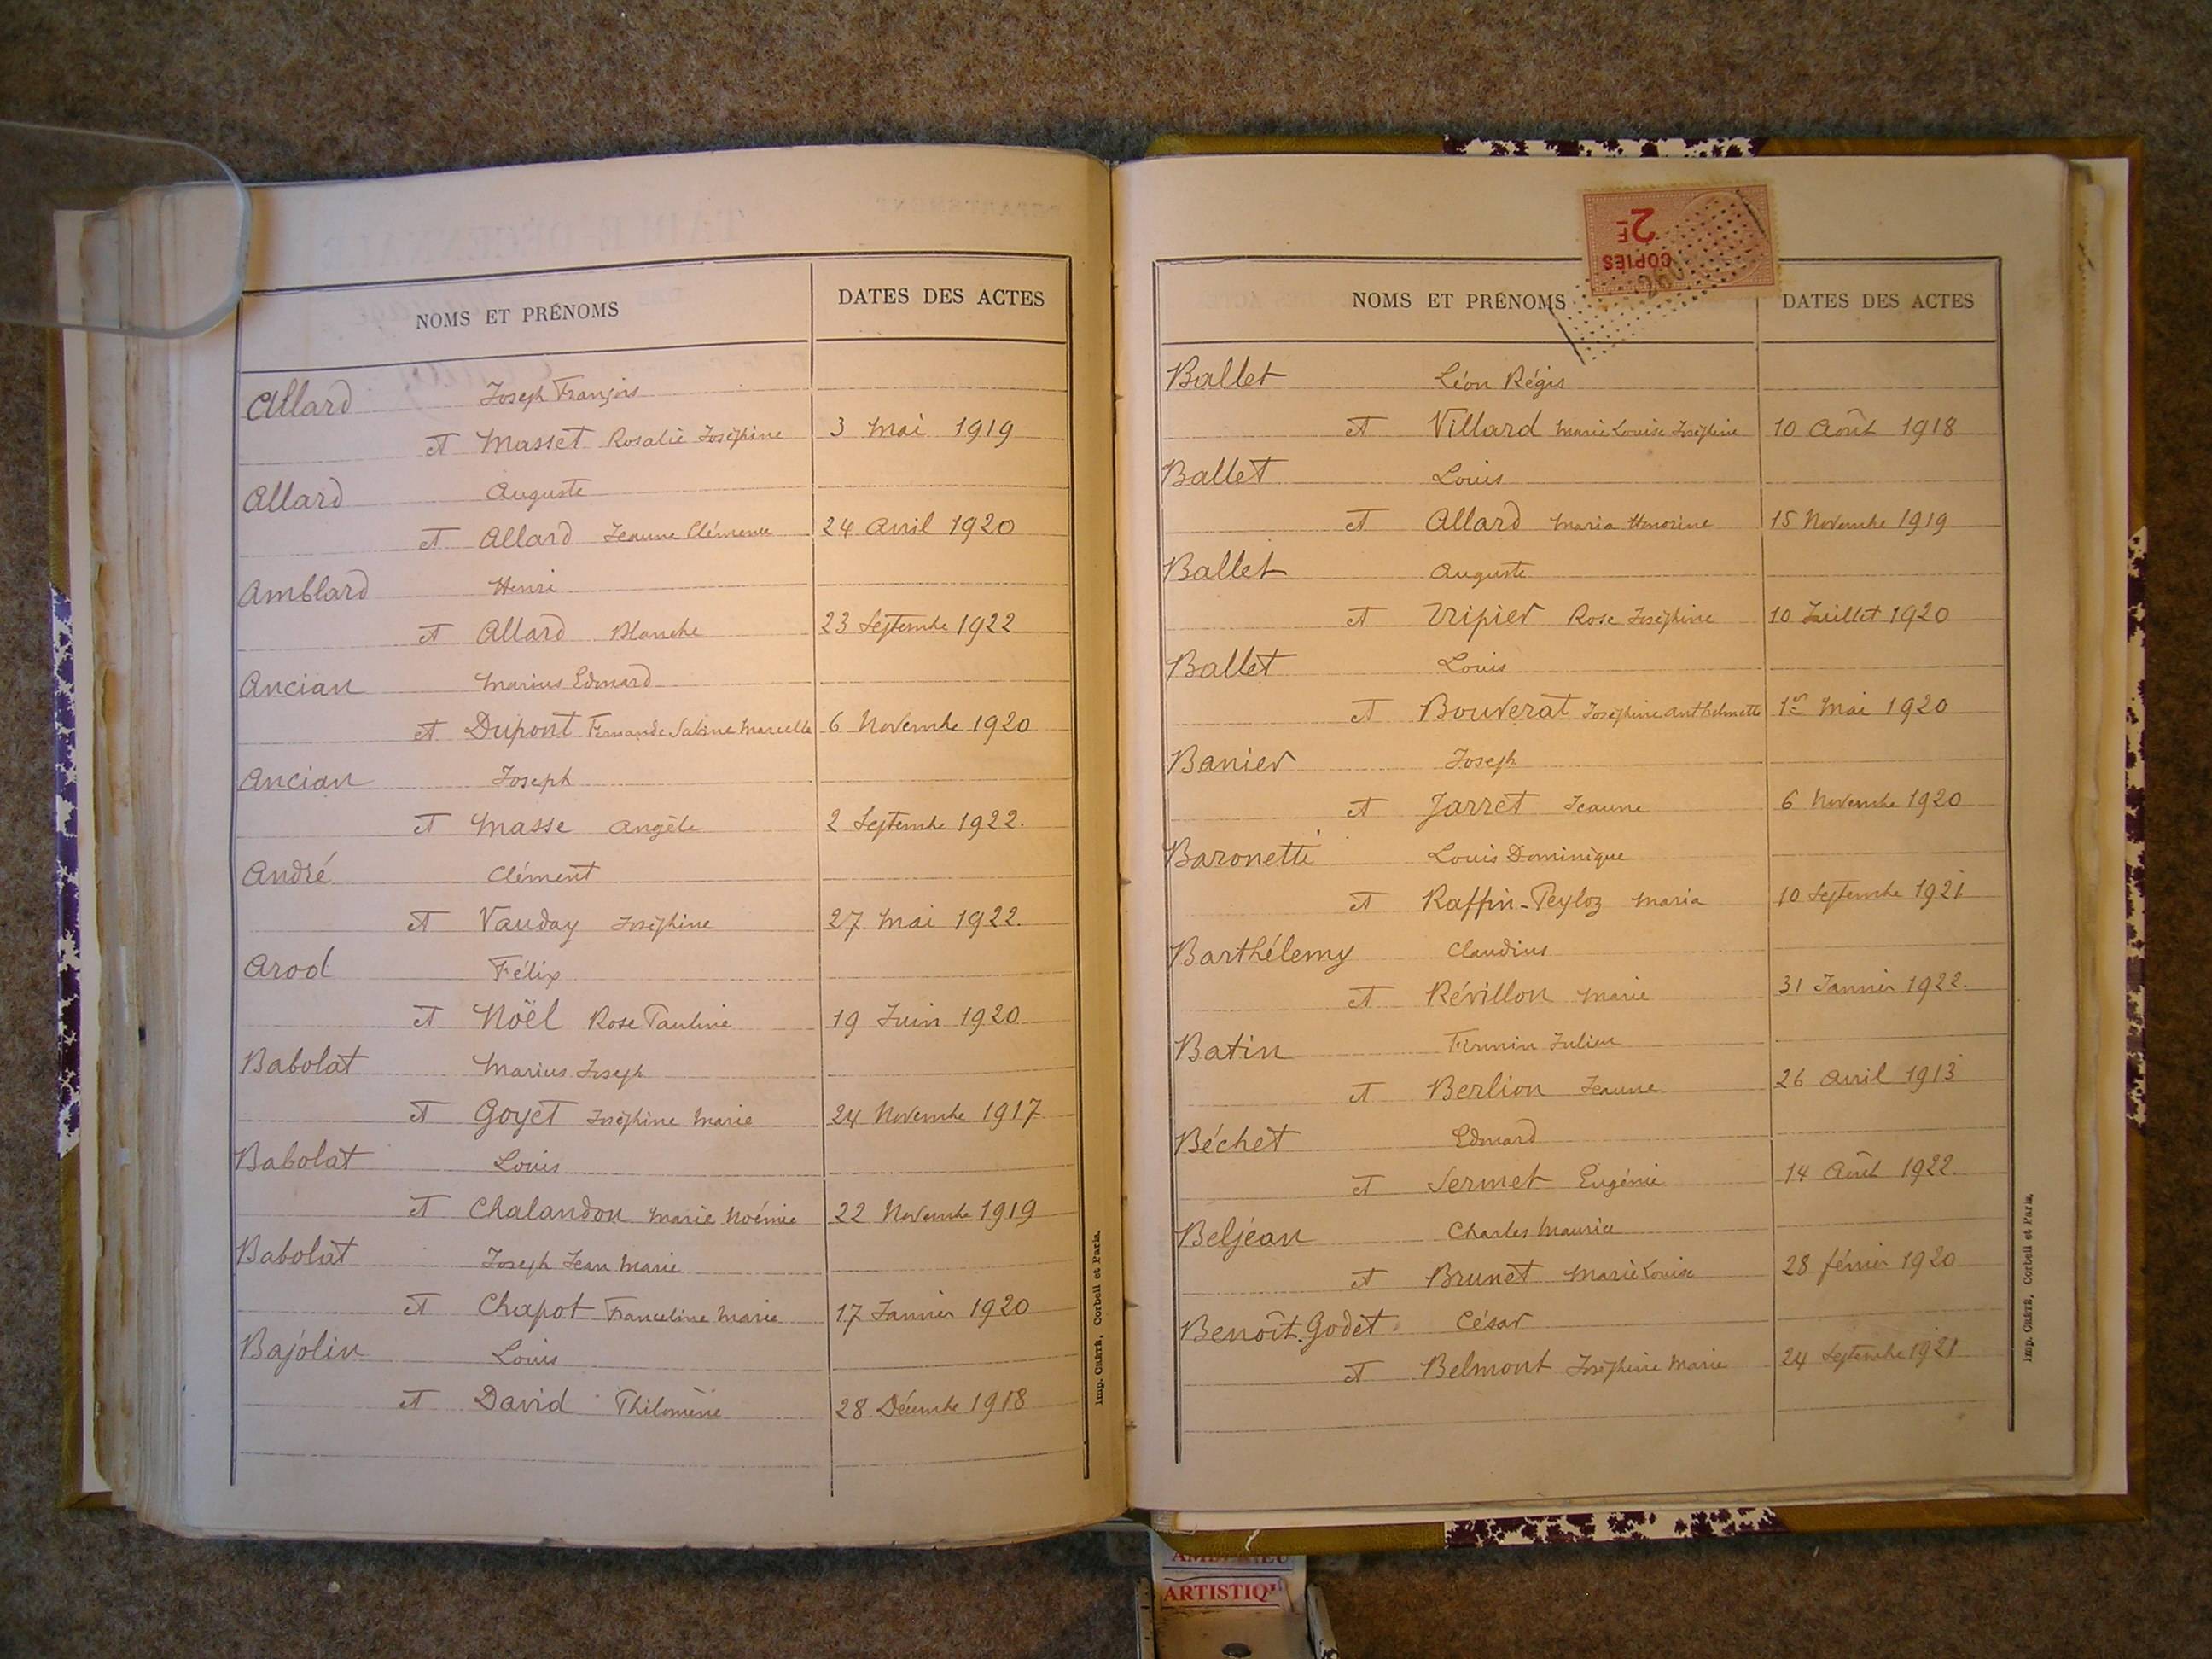 NOMS ET PRÉNOMS DATES DES ACTES
Allard Joseph François
et Masset Rosalie Joséphine 3 Mai 1919
Allard Auguste
et Allard Jeanne Clémence 24 Avril 1920
Amblard Henri
et Allard Blanche 23 Septembre 1922
Ancian Marius Edouard
et Dupont Fernande Sabine Marcelle 6 Novembre 1920
Ancian Joseph
et Masse Angèle 2 Septembre 1922.
André Clément
et Vauday Joséphine 27 Mai 1922.
Arod Félix
et Noël Rose Pauline 19 Juin 1920
Babolat Marius Joseph
et Goyet Joséphine Marie 24 Novembre 1917
Babolat Louis
et Chalandon Marie Noémie 22 Novembre 1919
Babolat Joseph Jean Marie
et Chapot Franceline Marie 17 Janvier 1920
Bajolin Louis
et David Philomène 28 Décembre 1918
Imp. CRÉTÉ, Corbeil et Paris.
2F
COPIES
NOMS ET PRÉNOMS DATES DES ACTES
Ballet Léon Régis
et Villard Marie Louise Joséphine 10 Août 1918
Ballet Louis
et Allard Maria Honorine 15 Novembre 1919
Ballet Auguste
et Tripier Rose Joséphine 10 Juillet 1920
Ballet Louis
et Bouverat Joséphine Anthelmette 1er Mai 1920
Banier Joseph
et Jarret Jeanne 6 Novembre 1920
Baronetti Louis Dominique
et Raffin-Peyloz Maria 10 Septembre 1921
Barthélemy Claudius
et Révillon Marie 31 Janvier 1922.
Batin Firmin Julien
et Berlion Jeanne 26 Avril 1913
Béchet Edouard
et Sermet Eugénie 14 Août 1922
Beljean Charles Maurice
et Brunet Marie Louise 28 février 1920
Benoît-Godet César
et Belmont Joséphine Marie 24 Septembre 1921
Imp. CRÉTÉ, Corbeil et Paris.